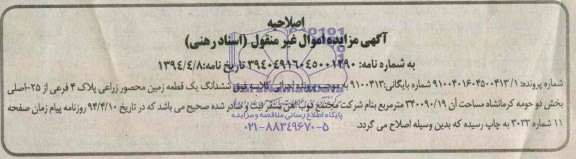 اصلاحیه
آگهی مزایده اموال غیر منقول (اسناد رهنی)
به شماره نامه: ۱۳۹۴۰۴۹۱۶۰۴۵۰۰۱۲۹۰ تاریخ نامه: ۱۳۹۴/۴/۸
شماره پرونده: ۹۱۰۰۴۰۱۶۰۴۵۰۰۴۱۳/۱ شماره بایگانی: ۹۱۰۰۴۱۳ به موجب پرونده اجرائی کلاسه فوق ششدانگ یک قطعه زمین محصور زراعی پلاک ۴ فرعی از ۲۵-اصلی
بخش دو حومه کرمانشاه مساحت آن ۳۴۰۰۹۰/۱۹ مترمربع بنام شرکت مجتمع ذوب آهن بیستون ثبت و صادر شده صحیح می باشد که در تاریخ ۹۴/۴/۱۰ روزنامه پیام زمان صفحه
۱۱ شماره ۳۰۳۳ به چاپ رسیده که بدین وسیله اصلاح می گردد.
پایگاه اطلاع رسانی مناقصه و مزایده
۰۲۱-۸۸۳۴۹۶۷۰-۵